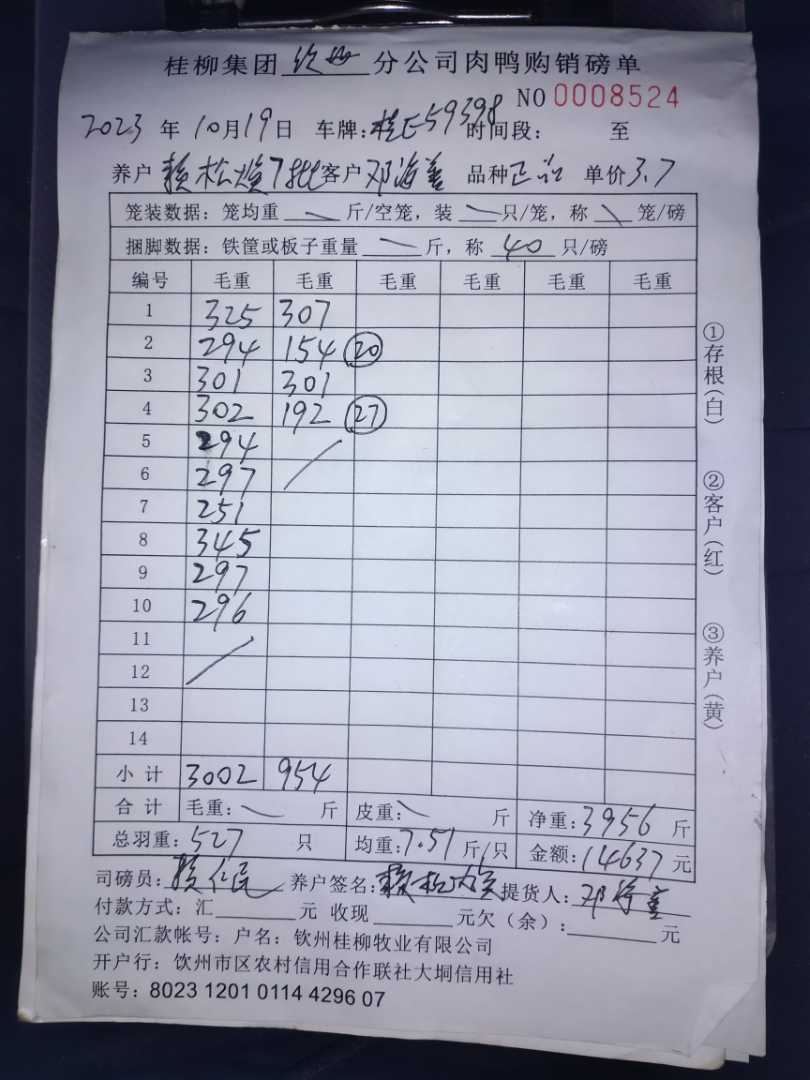 桂柳集团 钦州 分公司肉鸭购销磅单
NO 0008524
2023 年 10月19日 车牌：桂E59398 时间段： 至
养户 赖松焕7批 客户 邓海善 品种 正品 单价 3.7
笼装数据：笼均重 斤/空笼，装 只/笼，称 笼/磅
捆脚数据：铁筐或板子重量 斤，称 40 只/磅
编号 毛重 毛重 毛重 毛重 毛重 毛重
1 325 307
2 294 154 20
3 301 301
4 302 192 27
5 294
6 297
7 251
8 345
9 297
10 296
11
12
13
14
小计 3002 954
合计 毛重： 斤 皮重： 斤 净重：3956 斤
总羽重：527 只 均重：7.51 斤/只 金额：14637 元
司磅员：赖仁民 养户签名：赖松焕 提货人：邓海善
付款方式：汇 元 收现 元欠（余）： 元
公司汇款帐号：户名：钦州桂柳牧业有限公司
开户行：饮州市区农村信用合作联社大垌信用社
账号：8023 1201 0114 4296 07
①存根（白）
②客户（红）
③养户（黄）